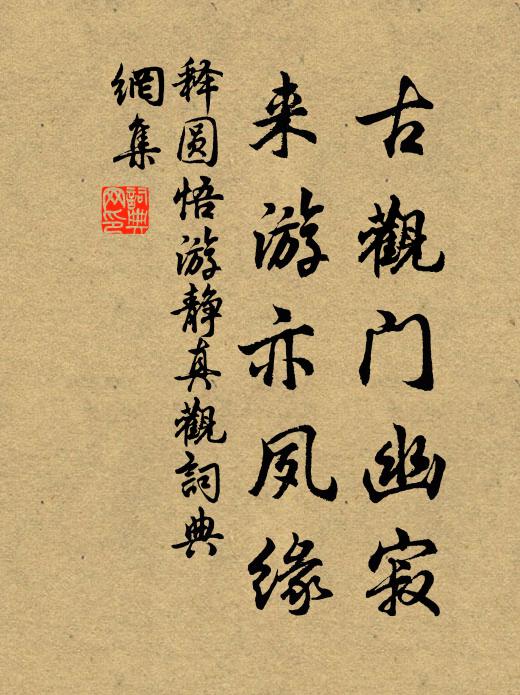 古觀门幽寂
来游亦夙缘
释圆悟游静真觀詞典
網集
詞典
网印